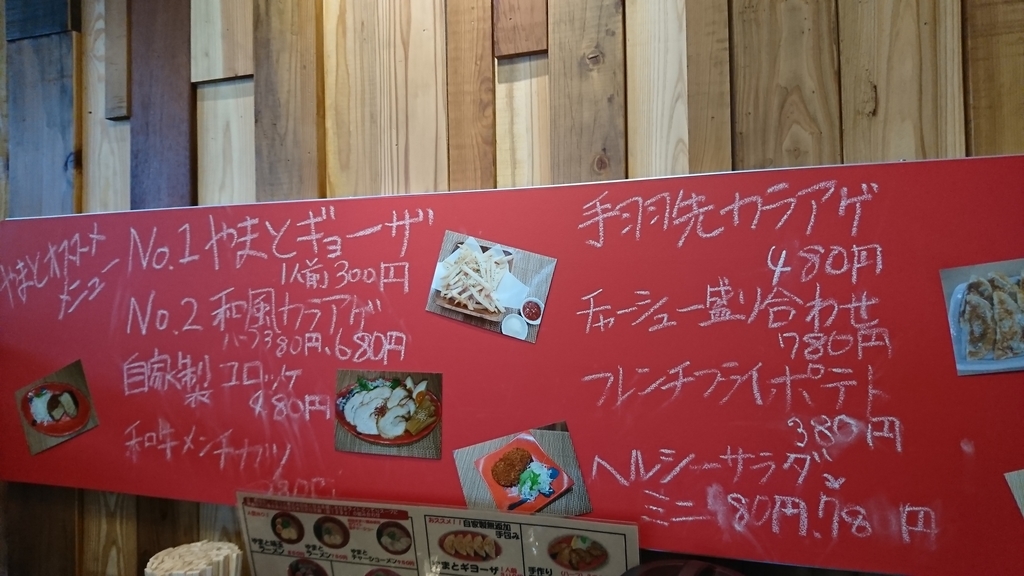 やまとオススメ
メニュー
No.1 やまとギョーザ
1人前 300円
No.2 和風カラアゲ
ハーフ380円、680円
自家製 コロッケ
480円
和牛メンチカツ
手羽先カラアゲ
480円
チャーシュー盛り合わせ
780円
フレンチフライポテト
380円
ヘルシーサラダ
ミニ 80円、78 円
おススメ！！自家製無添加
手包み
ラーメン
やまと
ラーメン
やまと
チャーシューメン
やまとギョーザ
手作り